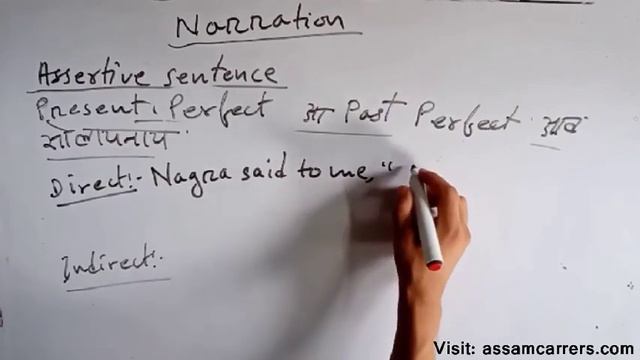 Narration
Assertive sentence
Present Perfect आ Past Perfect आव
सोलायनाय
Direct:- Nagra said to me, "
Indirect:-
Visit: assamcarrers.com